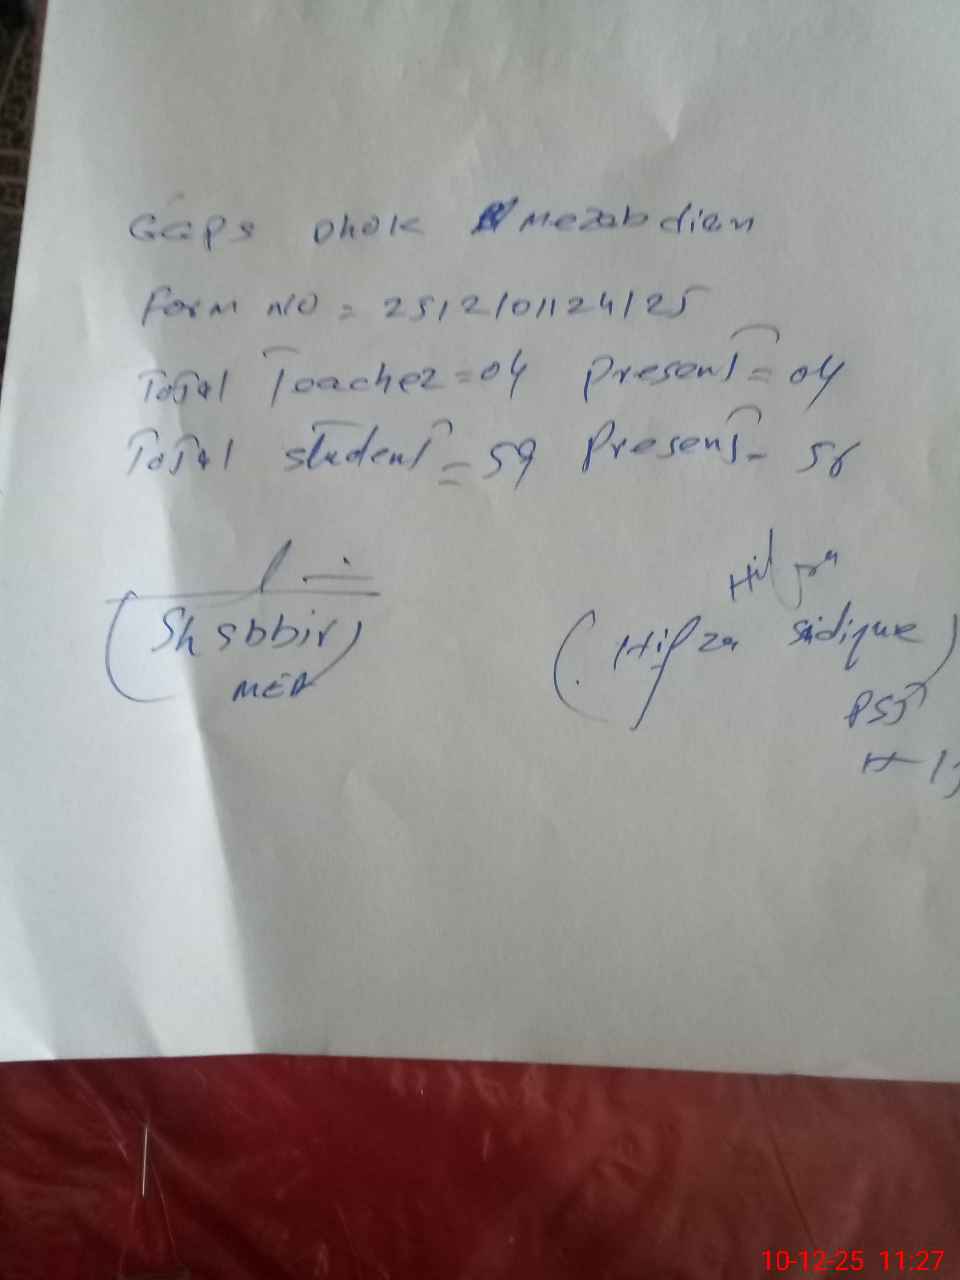 GGPS Dhok Mezab dien
Form no = 2512101124125
Total Teacher = 04 Present = 04
Total student = 59 Present = 56
(Shabbir)
MEA
(Hifza Sidique)
PST
10-12-25 11:27